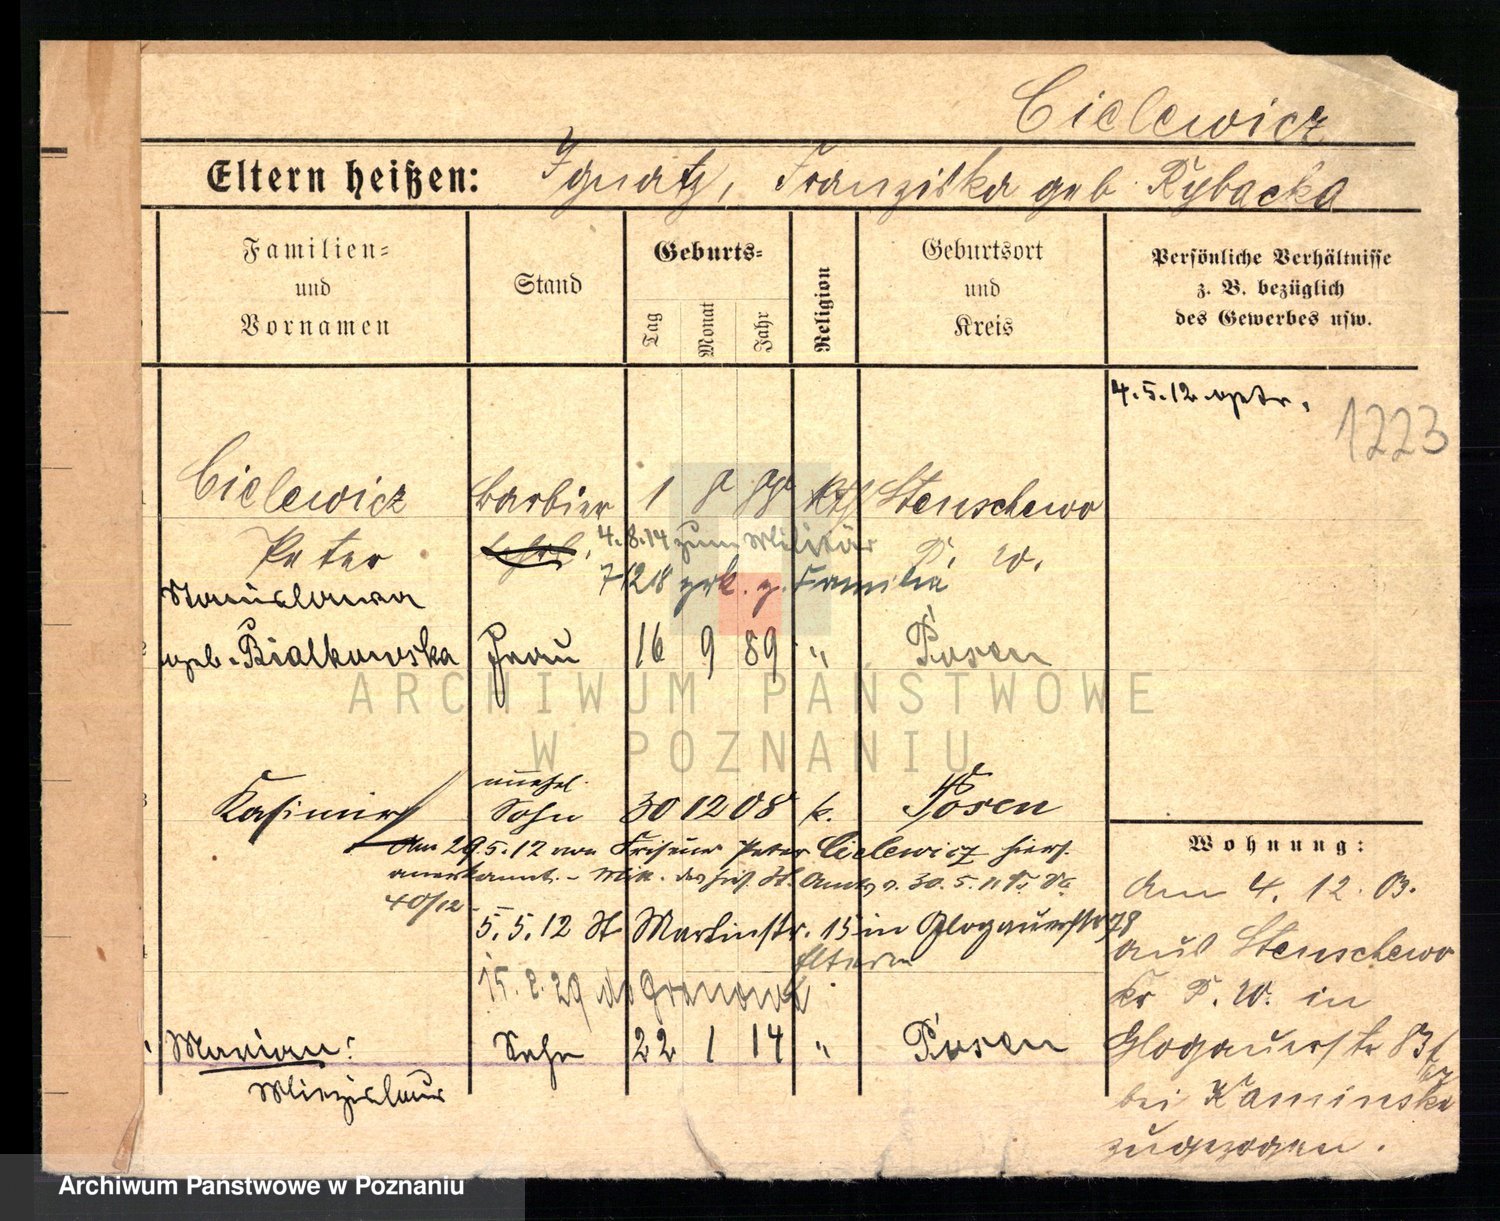 Cielewicz
Eltern heißen: Ignatz, Franziska geb. Rybacka
Familien-
und
Vornamen
Stand
Geburts-
Tag
Monat
Jahr
Religion
Geburtsort
und
Kreis
Persönliche Verhältnisse
z. B. bezüglich
des Gewerbes usw.
4.5.12
1223
Cielewicz Barbier 1 kth Stenschewo
Peter 4.8.14 zum Militär P. W.
z. Familie
Stanislawa
geb. Bialkowska Frau 16 9 89 " Posen
unehel.
Kasimir Sohn 30 12 08 k. Posen
Am 29.5.12 von Friseur Peter Cielewicz hiers.
anerkannt. - Mitt. des St. Amts v. 30.5.
5.5.12 St Martinstr. 15 in Glogauerstr 78
Eltern
15. 2. 29
Marian Sohn 22 1 14 " Posen
Miezislaus
Wohnung:
Am 4. 12. 03.
aus Stenschewo
Kr P. W. in
Glogauerstr 83
bei Kaminski
zugezogen.
ARCHIWUM PAŃSTWOWE
W POZNANIU
Archiwum Państwowe w Poznaniu